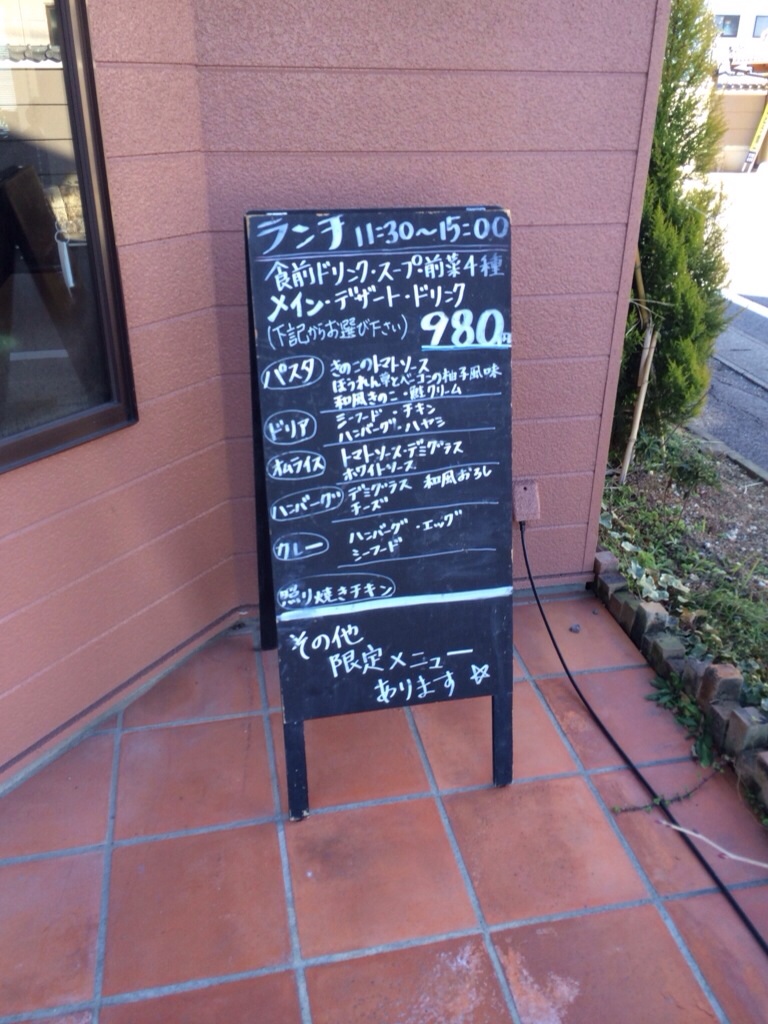 ランチ 11:30〜15:00
食前ドリンク・スープ・前菜4種
メイン・デザート・ドリンク
(下記からお選び下さい) 980円
パスタ きのこのトマトソース
ほうれん草とベーコンの柚子風味
和風きのこ・鮭クリーム
ドリア シーフード・チキン
ハンバーグ・ハヤシ
オムライス トマトソース・デミグラス
ホワイトソース
ハンバーグ デミグラス 和風おろし
チーズ
カレー ハンバーグ・エッグ
シーフード
照り焼きチキン
その他
限定メニュー
あります☆